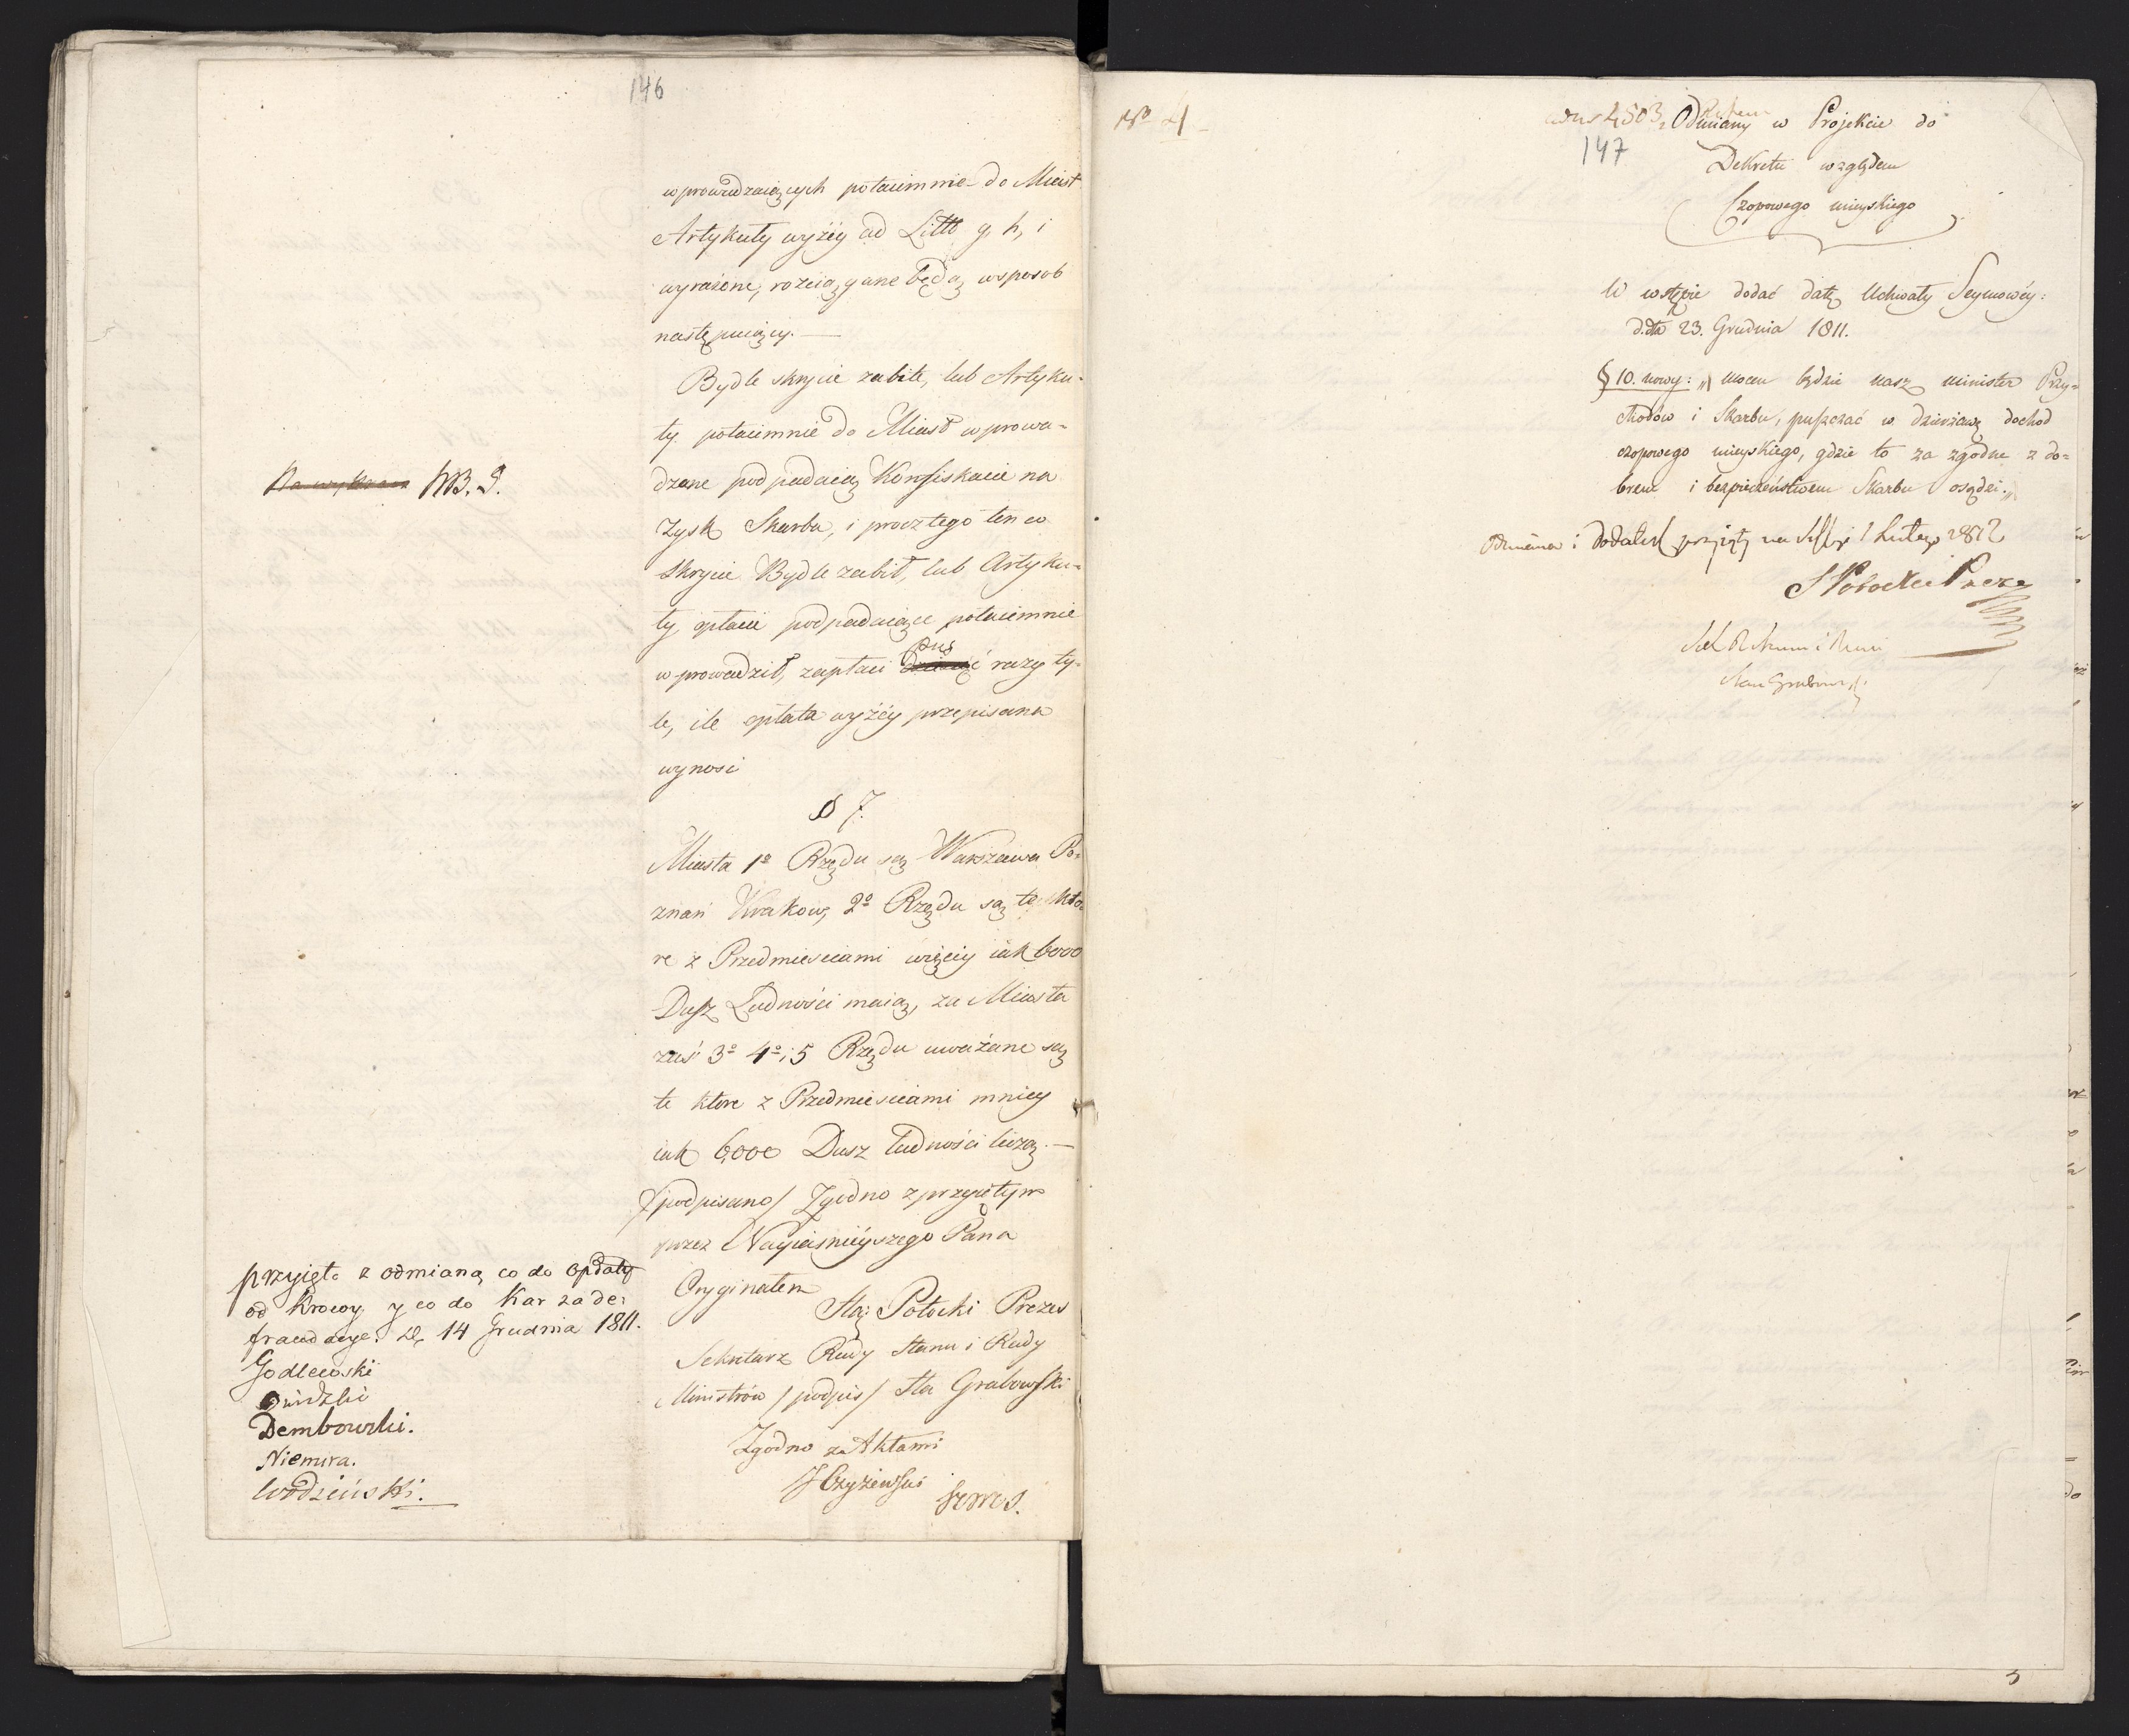 146
wprowadzaiących potaiemnie do Miast
Artykuły wyżéy ad Litt g, h, i
wyrażone, rozciągane będą wsposob
następuiący. —
Bydle skrycie zabite, lub Artyku-
ły potaiemnie do Miast wprowa-
dzone podpadaią Konfiskacie na
zysk Skarbu, i procz tego ten co
skrycie Bydle zabił, lub Artyku-
ły opłacie podpadaiące potaiemnie
wprowadził, zapłaci razy ty-
le, ile opłata wyżéy przepisana
wynosi
NB. 9.
§ 7.
Miasta 1º Rzędu są Warszawa Po-
znań Krakow, 2º Rzędu są te kto-
re z Przedmiesciami więcéy iak 6000
Dusz Ludności maią, za Miasta
zaś 3º 4º i 5 Rzędu uważane są
te ktore z Przedmiesciami mniey
iak 6000 Dusz ludności liczą. —
/podpisano/ Zgodno z przyiętym
przez Nayiaśnieyszego Pana
Oryginałem
Sta: Potocki Prezes
Sekretarz Rady Stanu i Rady
Ministrów /podpis/ Sta Grabowski
Zgodno z Aktami
J Czyżewski
przyięto z odmianą co do opłaty
od Krowy y co do Kar za de-
fraudacye. D. 14 Grudnia 1811.
Godlewski
Dembowski.
Niemira.
Wodziński.
Nº 4
4503
147
Odmiany w Projekcie do
Dekretu względem
Czopowego mieyskiego
W wstępie dodać datę Uchwały Seymowéy:
d.dto 23. Grudnia 1811.
§ 10. nowy: „ mocen będzie nasz minister Przy-
chodów i Skarbu, puszczać w dzierżawę dochod
czopowego mieyskiego, gdzie to za zgodne z do-
brem i bezpieczeństwem Skarbu osądzi. „
Odmiana i dodatek przyięty na Sessyi 1 Lutego 1812
S Potocki Prezes
Stan Grabowski